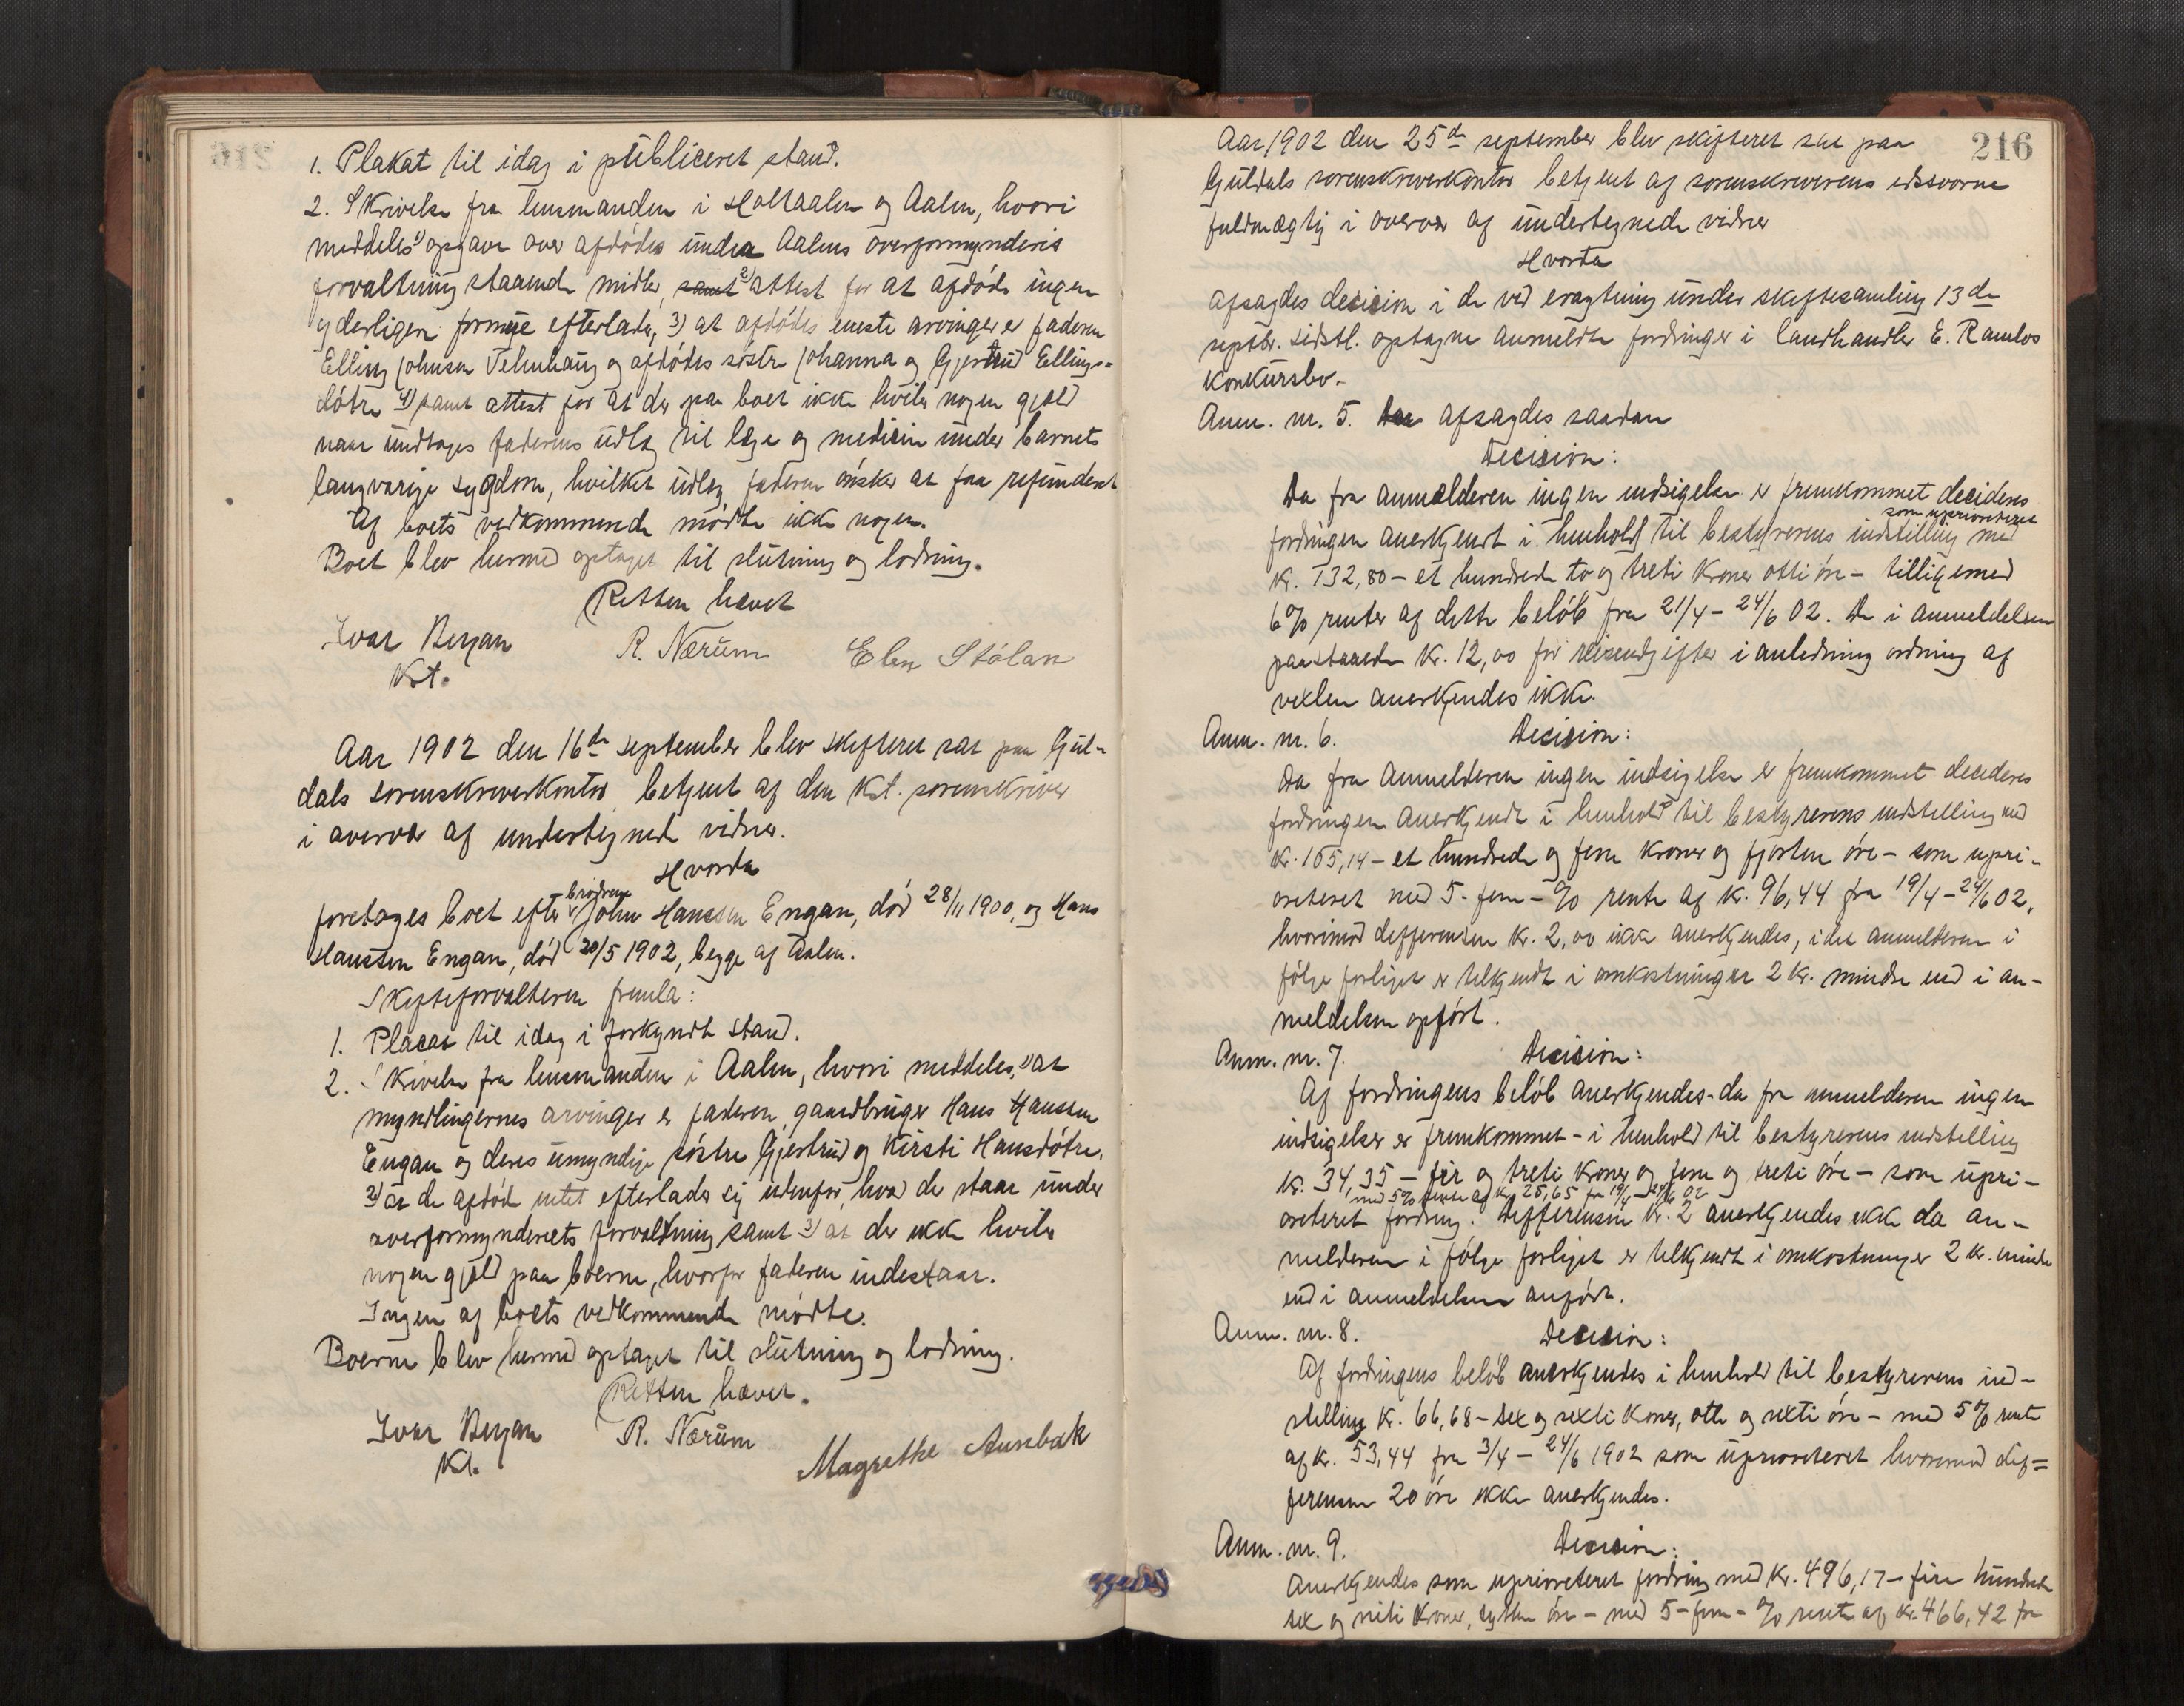 1. Plakat til idag i publiceret stand.
2. Skrivelse fra lensmanden i Holtaalen og Aalen, hvori
meddeles 1) opgave over afdødes under Aalens overformynderis
forvaltning staaende midler, samt 2) attest for at afdøde ingen
yderligere formue efterlader, 3) at afdødes eneste arvinger er faderen
Elling Johnsen Telnhaug og afdødes søstre Johanna og Gjertrud Ellings=
døtre 4) samt attest for at der paa boet ikke hviler nogen gjæld
naar undtages faderens udlæg til læge og medicin under barnets
langvarige sygdom, hvilket udlæg faderen ønsker at faa refunderet
Af boets vedkommende mødte ikke nogen.
Boet blev hermed optaget til slutning og lodning.
Retten hævet
Ivar Bergan R. Nærum Elen Stølan
Kst.
Aar 1902 den 16de september blev skifteret sat paa Gul-
dals sorenskriverkontor betjent af den kst. sorenskriver
i overvær af undertegnede vidner.
Hvorda
foretages boet efter brødrene John Hanssen Engan, død 28/11 1900, og Hans
Hanssen Engan, død 20/5 1902, begge af Aalen.
Skifteforvalteren fremla:
1. Placat til idag i forkyndt stand.
2. Skrivelse fra lensmanden i Aalen, hvori meddeles, 1) at
myndlingernes arvinger er faderen, gaardbruger Hans Hanssen
Engan og deres umyndige søstre Gjertrud og Kirsti Hansdøtre,
2) at de afdøde intet efterlader sig udenfor, hvad der staar under
overformynderiets forvaltning samt 3) at der ikke hviler
nogen gjæld paa boerne, hvorfor faderen indestaar.
Ingen af boets vedkommende mødte.
Boerne blev hermed optaget til slutning og lodning.
Retten hævet.
Ivar Bergan R. Nærum Magrethe Aunebak
Kst.
216
Aar 1902 den 25de september blev skifteret sat paa
Guldals sorenskriverkontor betjent af sorenskriverens edsvorne
fuldmægtig i overvær af undertegnede vidner
Hvorda
afsagdes decision i de ved eragtning under skiftesamling 13de
septbr. sidstl. optagne anmeldte fordringer i landhandler E. Ramlos
konkursbo.
Anm. nr. 5. afsagdes saadan
Decision:
Da fra anmelderen ingen indsigelse er fremkommet decideres
fordringen anerkjendt i henhold til bestyrerens indstilling som uprioriteret med
kr. 132,80 - et hundrede to og treti kroner otti øre - tilligemed
6% renter af dette beløb fra 21/4 - 24/6 02. De i anmeldelsen
paastaaede kr. 12,00 for reiseudgifter i anledning ordning af
vexlen anerkjendes ikke.
Anm. nr. 6. Decision:
Da fra anmelderen ingen indsigelse er fremkommet decideres
fordringen anerkjendt i henhold til bestyrerens indstilling med
kr. 105,14 - et hundrede og fem kroner og fjorten øre - som upri-
oriteret med 5 - fem - % rente af kr. 96,44 fra 19/4 - 24/6 02,
hvorimod defferensen kr. 2,00 ikke anerkjendes, idet anmelderen i
følge forliget er tilkjendt i omkostninger 2 kr. mindre end i an-
meldelsen opført.
Anm. nr. 7. Decision:
Af fordringens beløb anerkjendes - da fra anmelderen ingen
indsigelser er fremkommet - i henhold til bestyrerens indstilling
kr. 34,35 - fir og treti kroner og fem og treti øre - som upri-
oriteret fordring med 5% rente af kr. 25,65 fra 19/4 - 24/6 02. Defferensen kr. 2 anerkjendes ikke da an-
melderen i følge forliget er tilkjendt i omkostninger 2 kr. mindre
end i anmeldelsen anført.
Anm. nr. 8. Decision:
Af fordringens beløb anerkjendes i henhold til bestyrerens ind-
stilling kr. 66,68 - sex og sexti kroner, otte og sexti øre - med 5% rente
af kr. 53,44 fra 3/4 - 24/6 1902 som uprioriteret hvorimod dif=
ferensen 20 øre ikke anerkjendes.
Anm. nr. 9. Decision:
Anerkjendes som uprioriteret fordring med kr. 496,17 - fire hundrede
sex og niti kroner, sytten øre - med 5 - fem - % rente af kr. 466,42 fra